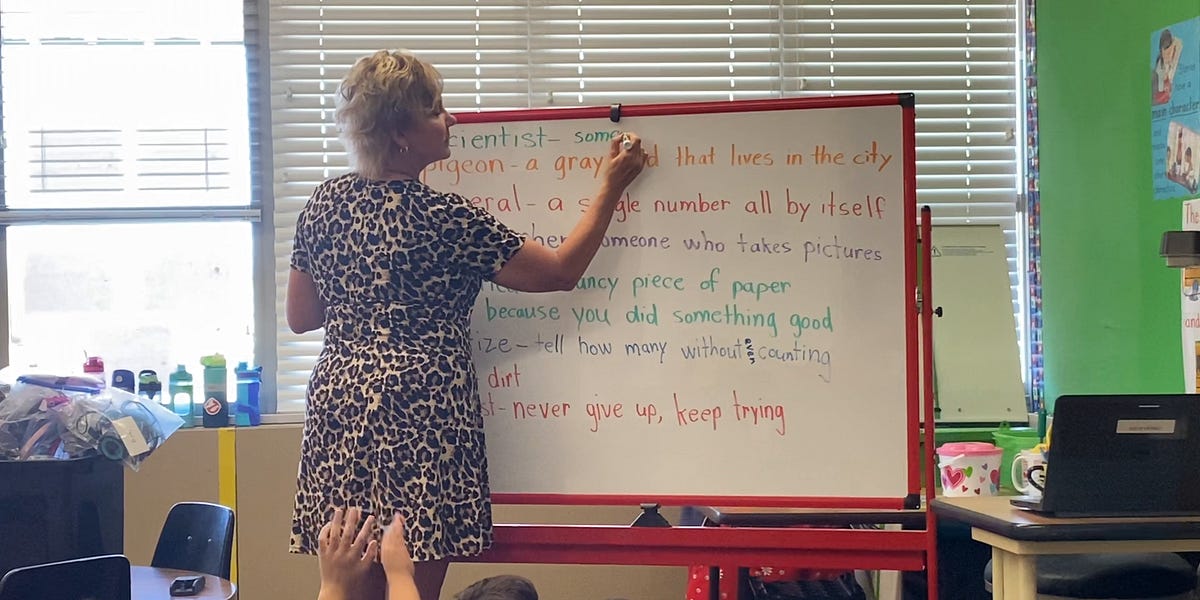 cientist- some
pigeon - a gray that lives in the city
eral - a single number all by itself
someone who takes pictures
fancy piece of paper
because you did something good
ize - tell how many without ever counting
dirt
st- never give up, keep trying
Stories
have a
main character
and
The
and